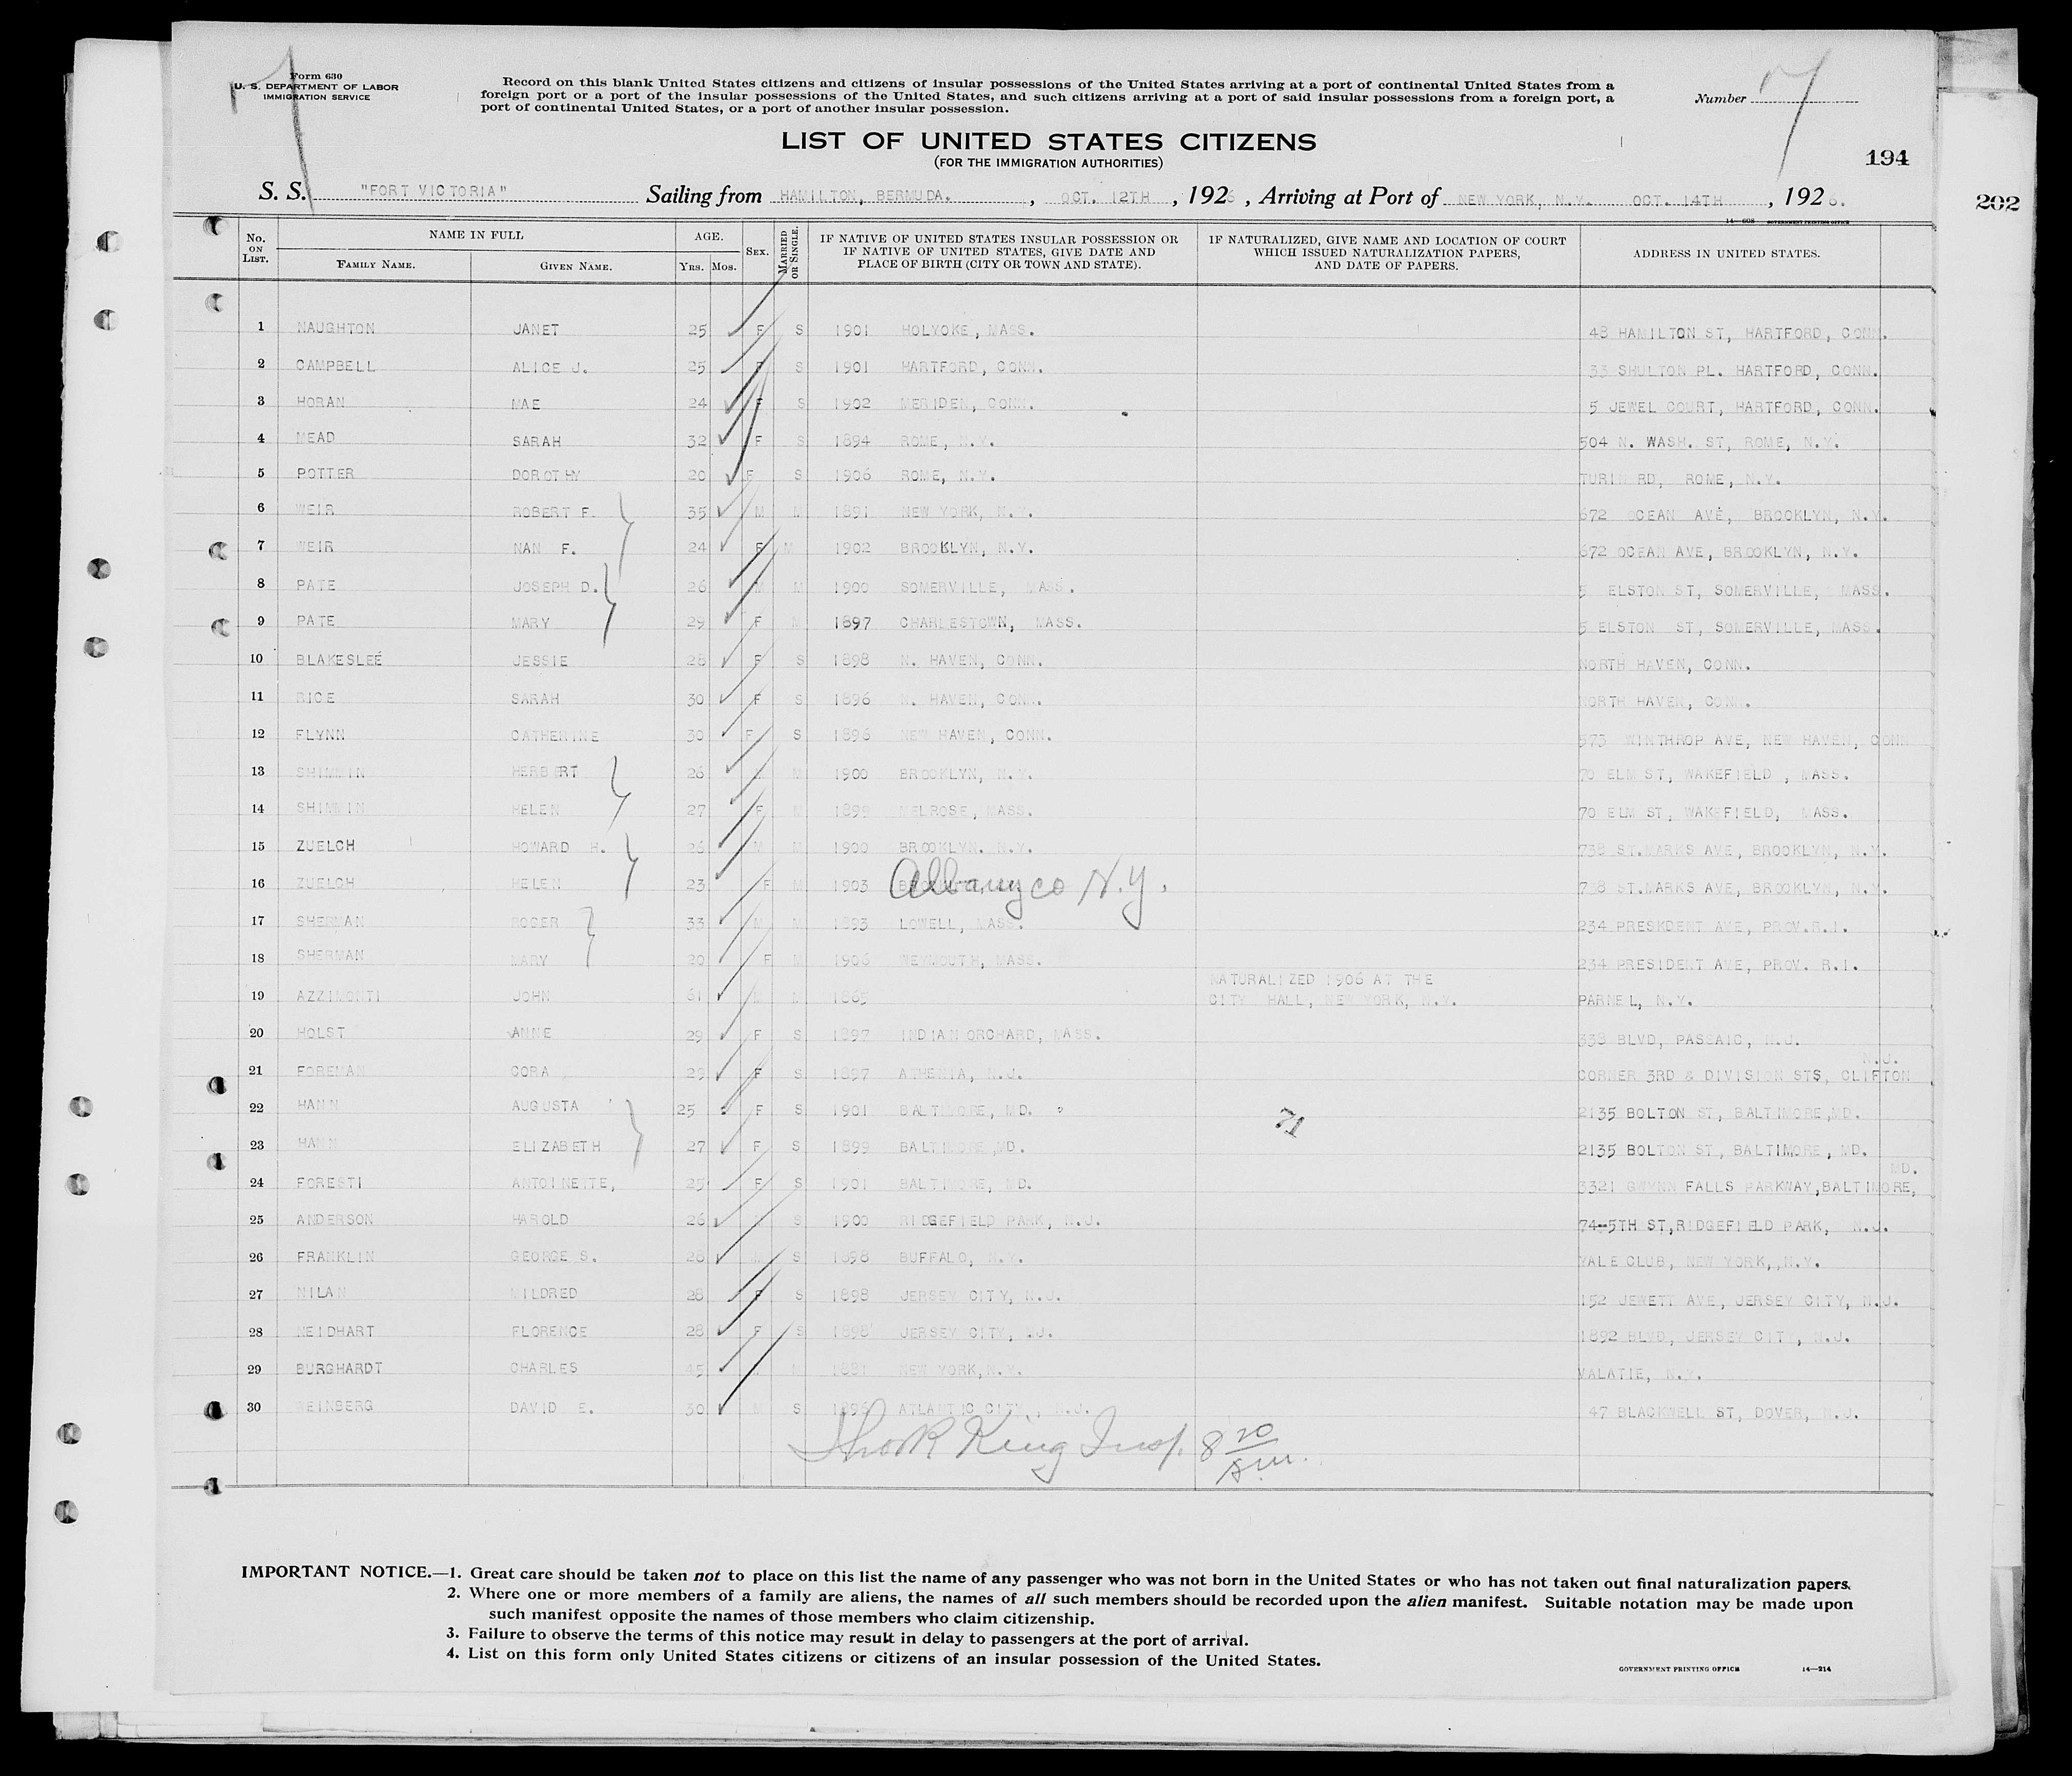 Form 630
U. S. DEPARTMENT OF LABOR
IMMIGRATION SERVICE
Record on this blank United States citizens and citizens of insular possessions of the United States arriving at a port of continental United States from a
foreign port or a port of the insular possessions of the United States, and such citizens arriving at a port of said insular possessions from a foreign port, a
port of continental United States, or a port of another insular possession.
Number
LIST OF UNITED STATES CITIZENS
(FOR THE IMMIGRATION AUTHORITIES)
194
202
S. S. "FORT VICTORIA" Sailing from HAMILTON, BERMUDA. , OCT. 12TH , 1926 , Arriving at Port of NEW YORK, N.Y. OCT. 14TH , 1926.
14—608 GOVERNMENT PRINTING OFFICE
No. ON LIST. NAME IN FULL FAMILY NAME. GIVEN NAME. AGE. YRS. MOS. SEX. MARRIED OR SINGLE. IF NATIVE OF UNITED STATES INSULAR POSSESSION OR IF NATIVE OF UNITED STATES, GIVE DATE AND PLACE OF BIRTH (CITY OR TOWN AND STATE). IF NATURALIZED, GIVE NAME AND LOCATION OF COURT WHICH ISSUED NATURALIZATION PAPERS, AND DATE OF PAPERS. ADDRESS IN UNITED STATES.
1 NAUGHTON JANET 25 F S 1901 HOLYOKE, MASS. 48 HAMILTON ST, HARTFORD, CONN.
2 CAMPBELL ALICE J. 25 F S 1901 HARTFORD, CONN. 33 SHULTON PL. HARTFORD, CONN.
3 HORAN MAE 24 F S 1902 MERIDEN, CONN. 5 JEWEL COURT, HARTFORD, CONN.
4 MEAD SARAH 32 F S 1894 ROME, N.Y. 504 N. WASH. ST, ROME, N.Y.
5 POTTER DOROTHY 20 F S 1906 ROME, N.Y. TURIN RD, ROME, N.Y.
6 WEIR ROBERT F. 35 M M 1891 NEW YORK, N.Y. 672 OCEAN AVE, BROOKLYN, N.Y.
7 WEIR NAN F. 24 F M 1902 BROOKLYN, N.Y. 672 OCEAN AVE, BROOKLYN, N.Y.
8 PATE JOSEPH D. 26 M M 1900 SOMERVILLE, MASS. 5 ELSTON ST, SOMERVILLE, MASS.
9 PATE MARY 29 F M 1897 CHARLESTOWN, MASS. 5 ELSTON ST, SOMERVILLE, MASS.
10 BLAKESLEE JESSIE 28 F S 1898 N. HAVEN, CONN. NORTH HAVEN, CONN.
11 RICE SARAH 30 F S 1896 N. HAVEN, CONN. NORTH HAVEN, CONN.
12 FLYNN CATHERINE 30 F S 1896 NEW HAVEN, CONN. 573 WINTHROP AVE, NEW HAVEN, CONN
13 SHIMMIN HERBERT 26 M M 1900 BROOKLYN, N.Y. 70 ELM ST, WAKEFIELD , MASS.
14 SHIMMIN HELEN 27 F M 1899 MELROSE, MASS. 70 ELM ST, WAKEFIELD, MASS.
15 ZUELCH HOWARD H. 26 M M 1900 BROOKLYN. N.Y. 738 ST.MARKS AVE, BROOKLYN, N.Y.
16 ZUELCH HELEN 23 F M 1903 Albany co N.Y. 738 ST.MARKS AVE, BROOKLYN, N.Y.
17 SHERMAN ROGER 33 M M 1893 LOWELL, MASS. 234 PRESKDENT AVE, PROV.R.I.
18 SHERMAN MARY 20 F M 1906 WEYMOUTH, MASS. 234 PRESIDENT AVE, PROV. R.I.
NATURALIZED 1906 AT THE
19 AZZIMONTI JOHN 61 M M 1865 CITY HALL, NEW YORK, N.Y. PARNEL, N.Y.
20 HOLST ANNE 29 F S 1897 INDIAN ORCHARD, MASS. 338 BLVD, PASSAIC, N.J.
N.J.
21 FOREMAN CORA 29 F S 1897 ATHENIA, N.J. CORNER 3RD & DIVISION STS, CLIFTON
22 HANN AUGUSTA 25 F S 1901 BALTIMORE, MD. 2135 BOLTON ST, BALTIMORE,MD.
71
23 HANN ELIZABETH 27 F S 1899 BALTIMORE,MD. 2135 BOLTON ST, BALTIMORE, MD.
MD.
24 FORESTI ANTOINETTE, 25 F S 1901 BALTIMORE, MD. 3321 GWYNN FALLS PARKWAY,BALTIMORE,
25 ANDERSON HAROLD 26 M S 1900 RIDGEFIELD PARK, N.J. 74-5TH ST,RIDGEFIELD PARK, N.J.
26 FRANKLIN GEORGE S. 28 M S 1898 BUFFALO, N.Y. YALE CLUB, NEW YORK, N.Y.
27 NILAN MILDRED 28 F S 1898 JERSEY CITY, N.J. 152 JEWETT AVE, JERSEY CITY, N.J.
28 NEIDHART FLORENCE 28 F S 1898 JERSEY CITY, N.J. 1892 BLVD, JERSEY CITY, N.J.
29 BURGHARDT CHARLES 45 M M 1881 NEW YORK,N.Y. VALATIE, N.Y.
30 WEINBERG DAVID E. 30 M S 1896 ATLANTIC CITY, N.J. 47 BLACKWELL ST, DOVER, N.J.
King Insp. 8 20 am.
IMPORTANT NOTICE.—1. Great care should be taken not to place on this list the name of any passenger who was not born in the United States or who has not taken out final naturalization papers.
2. Where one or more members of a family are aliens, the names of all such members should be recorded upon the alien manifest. Suitable notation may be made upon
such manifest opposite the names of those members who claim citizenship.
3. Failure to observe the terms of this notice may result in delay to passengers at the port of arrival.
4. List on this form only United States citizens or citizens of an insular possession of the United States.
GOVERNMENT PRINTING OFFICE 14—214